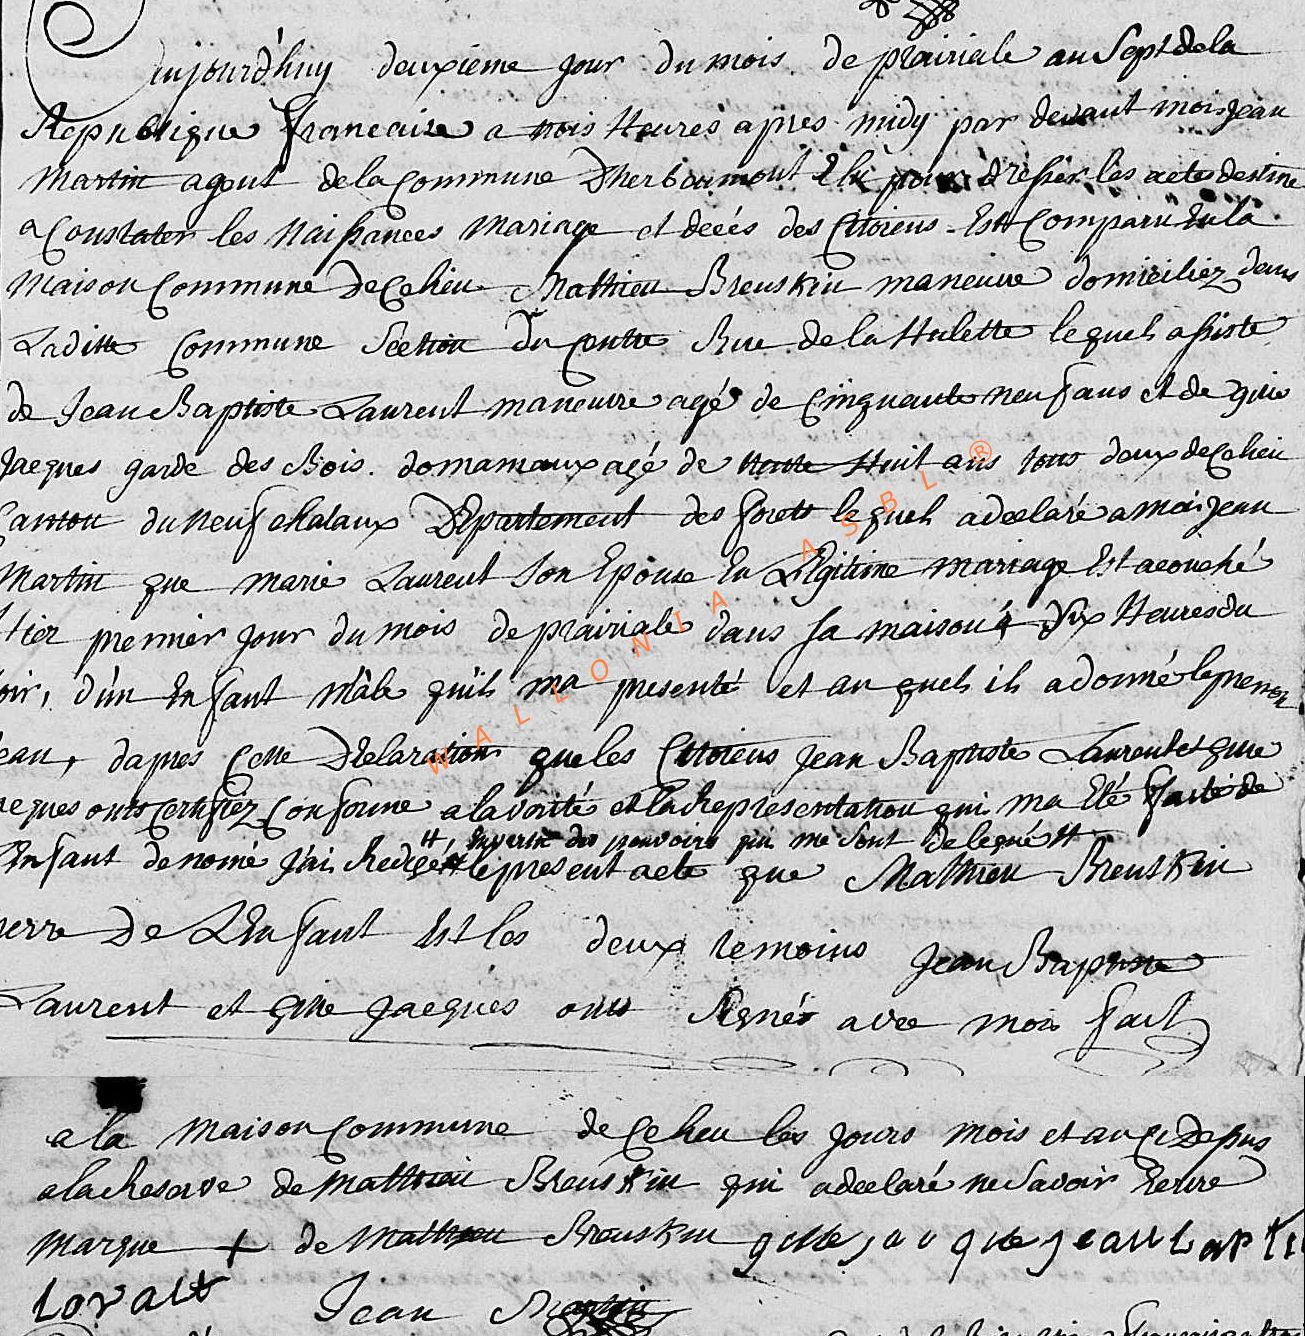 Aujourd'huy deuxieme jour du mois de prairiale an Sept de la
Republique francaise a trois Heures apres midy par devant mois jean
Martin agent de la Commune Dherbeumont Elü pour dresser les actes destine
a Constater les Naissances Mariage et decés des Citoiens Est Comparu En la
Maison Commune De Ce lieu Mathieu Breuskin maneuvre domiciliez dans
Laditte Commune Section Du Centre Rue de la Hulette lequel assiste
de Jean Baptiste Laurent maneuvre agé de Cinquante neuf ans et de gille
Jacques garde des Bois domaniaux agé de trente Huit ans tous deux de Ce lieu
Canton du Neufchataux Departement des forets lequel a declaré a mois jean
Martin que marie Laurent Son Epouse En Legitime mariage Est acouché
Hier premier jour du mois de prairiale dans sa maison a Dix Heures du
soir, d'un Enfant Mâle quil ma presenté et au quel il a donné le prenon
Jean, dapres Cette Declaration que les Citoiens jean Baptiste Laurent et gille
jacques onts Certifiez Conforme a la vérité et la Representation qui ma Eté faite de
Enfant denomé j'ai Redigé # le present acte que Mathieu Breuskin
# En vertu des pouvoirs qui me sont delegué #
perre De L'Enfant Est les deux temoins Jean Baptiste
Laurent et gille Jacques onts Signés avec mois fait
a la maison Commune de Ce lieu les jours mois et an Ci Depus
a la Reserve de Mathieu Breuskin qui a declaré ne Savoir Ecrire
Marque + de Mathieu Breuskin gille jauque jean bapti
Loralt Jean Martin
WALLONIA ASBL ®